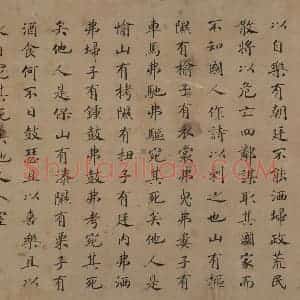 以自樂有朝廷不能洒埽政荒民
散將以危亡四鄰謀取其國家而
不知國人作詩以刺之也山有樞
隰有榆子有衣裳弗曳弗婁子有
車馬弗馳弗驅宛其死矣他人是
愉山有栲隰有杻子有廷內弗洒
弗埽子有鍾鼓弗鼓弗考宛其死
矣他人是保山有漆隰有栗子有
酒食何不日鼓瑟且以喜樂且以
日宛其死矣他人入室